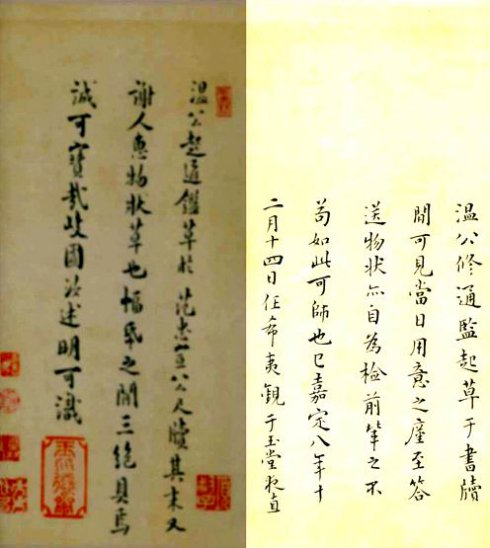 温公修通監起草于書牘
間可見當日用意之廑至答
送物狀亦自為檢前輩之不
苟如此可師也已嘉定八年十
二月十四日任希夷觀于玉堂夜直
温公起通鑑草於范忠宣公尺牘其末又
謝人惠物狀草也幅紙之間三絕具焉
誠可寶哉國汝述明可識